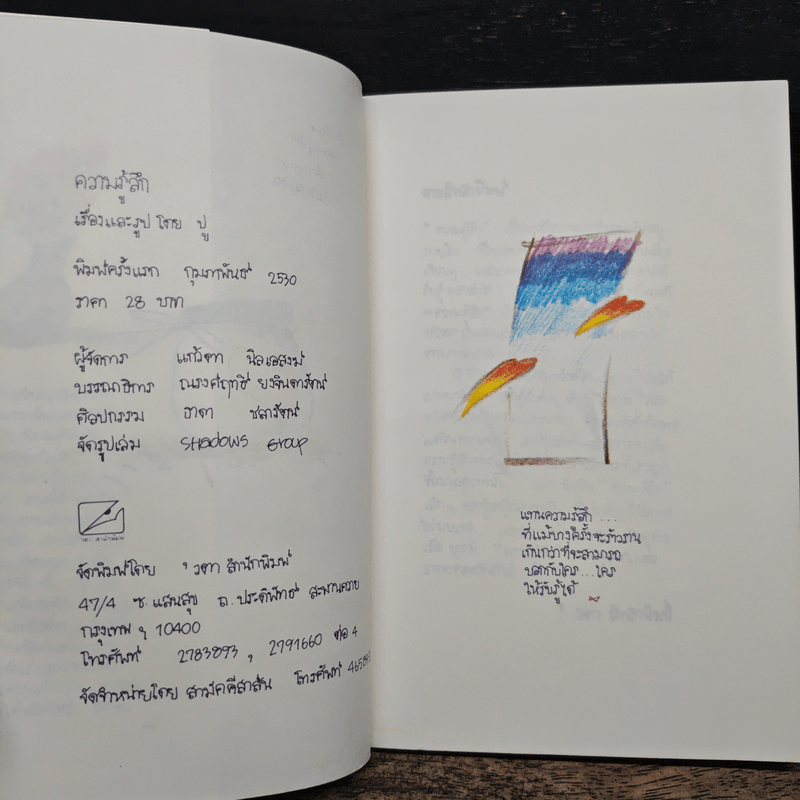 ความรู้สึก
เรื่องและรูป โดย ปู
พิมพ์ครั้งแรก กุมภาพันธ์ 2530
ราคา 28 บาท
ผู้จัดการ แก้วตา
บรรณาธิการ ณรงค์ฤทธิ์ ยงจินดารัตน์
ศิลปกรรม ธาดา ชลารัตน์
จัดรูปเล่ม SHADOWS GROUP
จัดพิมพ์โดย วตา สำนักพิมพ์
47/4 ซ.แสนสุข ถ.ประดิพัทธ์ สะพานควาย
กรุงเทพ ฯ 10400
โทรศัพท์ 2783893 , 2791660 ต่อ 4
จัดจำหน่ายโดย สามัคคีสาส์น โทรศัพท์
แทนความรู้สึก ...
ที่แม้บางครั้งจะร้าวราน
เกินกว่าที่จะสามารถ
บอกกับใคร...ใคร
ให้รับรู้ได้